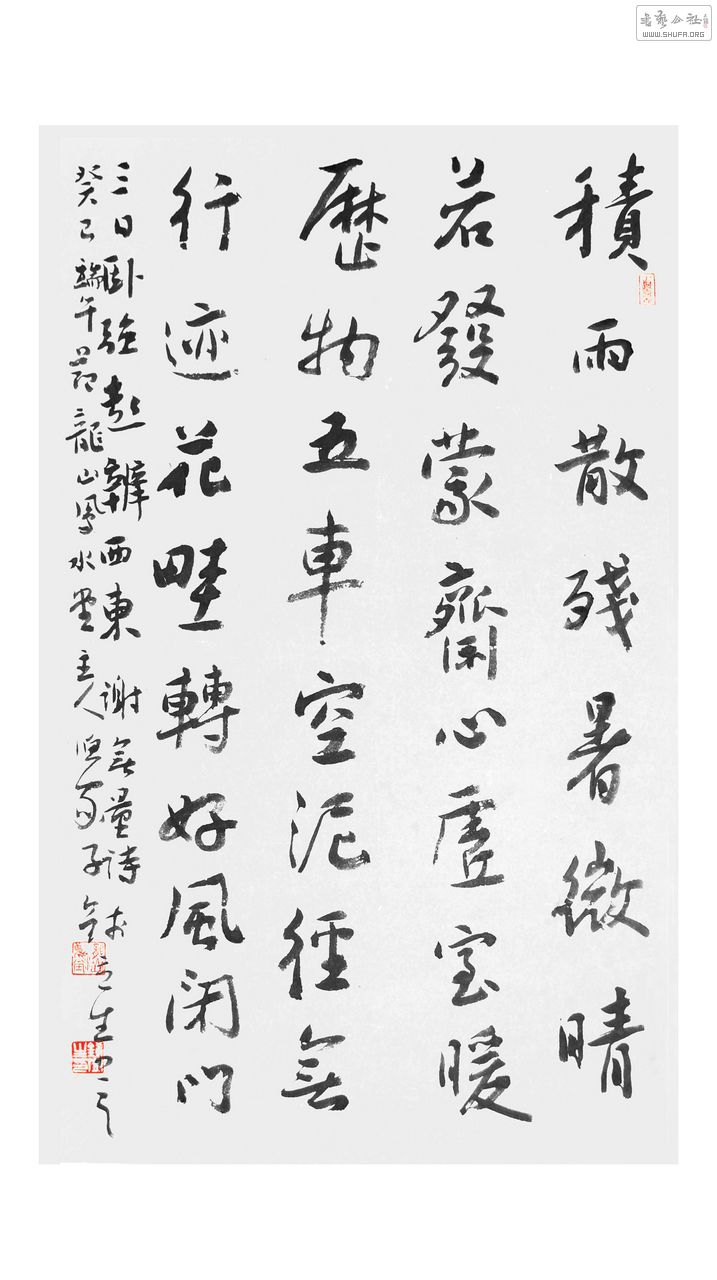 積雨散殘暑微晴
若發蒙齋心虛室暖
歷物五車空泥徑無
行迹花畦轉好風闭門
三日卧強起辨西東 謝無量詩
癸巳端午節二龍山鳳水堂主人
WWW.SHUFA.ORG